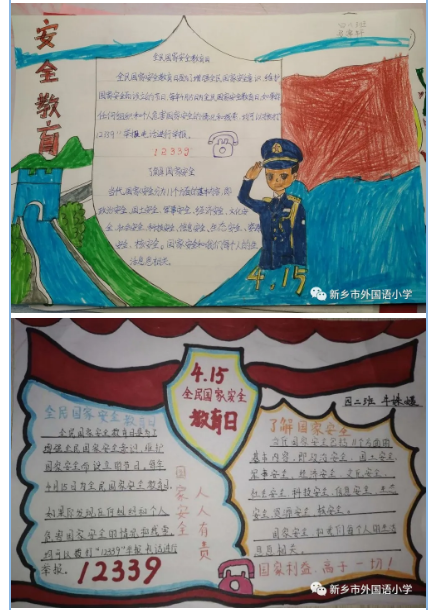 安全教育
四二班
全民国家安全教育日
全民国家安全教育日是为了增强全民国家安全意识,维护
国家安全而设立的节日。每年4月15日为全民国家安全教育日。如果发现
任何组织和个人危害国家安全的情况和线索,
12339
了解国家安全
当代国家安全分为11个方面的基本内容,即
政治安全、国土安全、军事安全、经济安全、文化安
全、社会安全、科技安全、信息安全、生态安全、资源
安全、核安全。国家安全和我们每个人的生
活息息相关。
4.15
新乡市外国语小学
4.15
全民国家安全
教育日
四二班
全民国家安全教育日
全民国家安全教育日是为了
增强全民国家安全意识,维护
国家安全而设立的节日。每年
4月15日为全民国家安全教育日。
如果发现任何组织和个人
危害国家安全的情况和线索,
可以拨打"12339"举报电话进行
举报。
12339
国家安全
人人有责
了解国家安全
当代国家安全包括11个方面的
基本内容,即政治安全、国土安全、
军事安全、经济安全、文化安全、
社会安全、科技安全、信息安全、生态
安全、资源安全、核安全。
国家安全和我们每个人的生活
息息相关。
国家利益,高于一切!
新乡市外国语小学